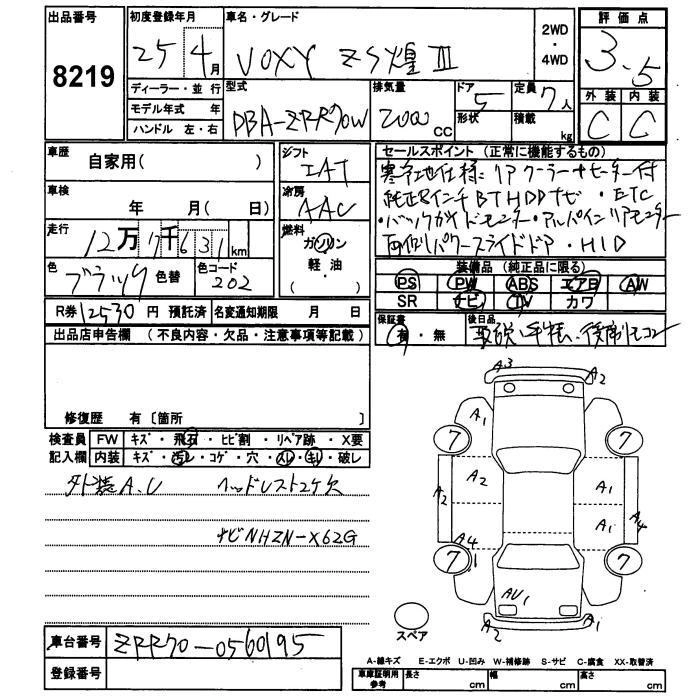 出品番号 初度登録年月 車名・グレード 2WD ・ 4WD 評価点
8219 25 4月 VOXY ZS煌Ⅲ 3.5
ディーラー・並行 型式 排気量 ドア 5 定員 7人 外装 内装
モデル年式 年 DBA-ZRR70W 2000cc 形状 積載 kg C C
ハンドル 左・右
車歴 自家用( ) シフト IAT セールスポイント (正常に機能するもの)
寒冷地仕様・リアクーラーヒーター付
車検 年 月( 日) 冷房 AAC 純正8インチBTHDDナビ・ETC
・バックガイドモニター・アルパインリアモニター
走行 12万7千631km 燃料 ガソリン 軽油 ( ) 両側パワースライドドア・HID
色 ブラック 色替 色コード 202 装備品 (純正品に限る)
PS PW ABS エアB AW
SR ナビ TV カワ
R券 12530円 預託済 名変通知期限 月 日 保証書 有・無 後日品 取説、手帳、後席リモコン
出品店申告欄 (不良内容・欠品・注意事項等記載)
修復歴 有〔箇所 〕
検査員 FW キズ・飛石・ヒビ割・リペア跡・X要
記入欄 内装 キズ・汚レ・コゲ・穴・スレ・キレ・破レ
外装A.U ヘッドレスト2ケ欠
ナビNHZN-X62G
A3 A2
A1
7 7
A2 A2 A1
A1 A4
A4
7 1 7
AU1
A2 A1
スペア
車台番号 ZRR70-0560195
登録番号
A-線キズ E-エクボ U-凹み W-補修跡 S-サビ C-腐食 XX-取替済
車庫証明用参考 長さ cm 幅 cm 高さ cm